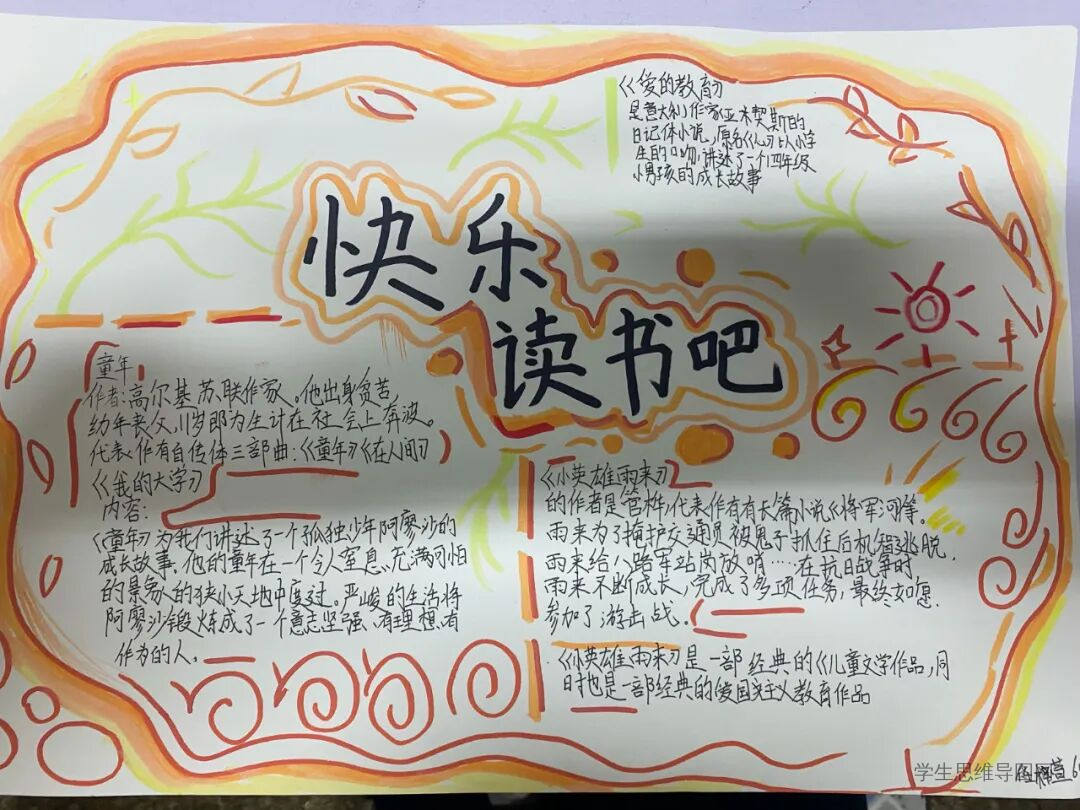 快乐
读书吧
《爱的教育》
是意大利作家亚米契斯的
日记体小说,原名《心》以小学
生的口吻,讲述了一个四年级
小男孩的成长故事
童年
作者:高尔基苏联作家。他出身贫苦,
幼年丧父,11岁即为生计在社会上奔波。
代表作有自传体三部曲:《童年》《在人间》
《我的大学》
内容:
《童年》为我们讲述了一个孤独少年阿廖沙的
成长故事.他的童年在一个令人窒息、充满可怕
的景象的狭小天地中度过。严峻的生活将
阿廖沙锻炼成了一个意志坚强、有理想、有
作为的人。
《小英雄雨来》
的作者是管桦,代表作有有长篇小说《将军河》等。
雨来为了掩护交通员被鬼子抓住后机智逃脱.
雨来给八路军站岗放哨……在抗日战争时
雨来不断成长,完成了多项任务,最终如愿.
参加了游击战。
《小英雄雨来》是一部经典的《儿童文学作品,同
时也是一部经典的爱国主义教育作品
学生思维导图